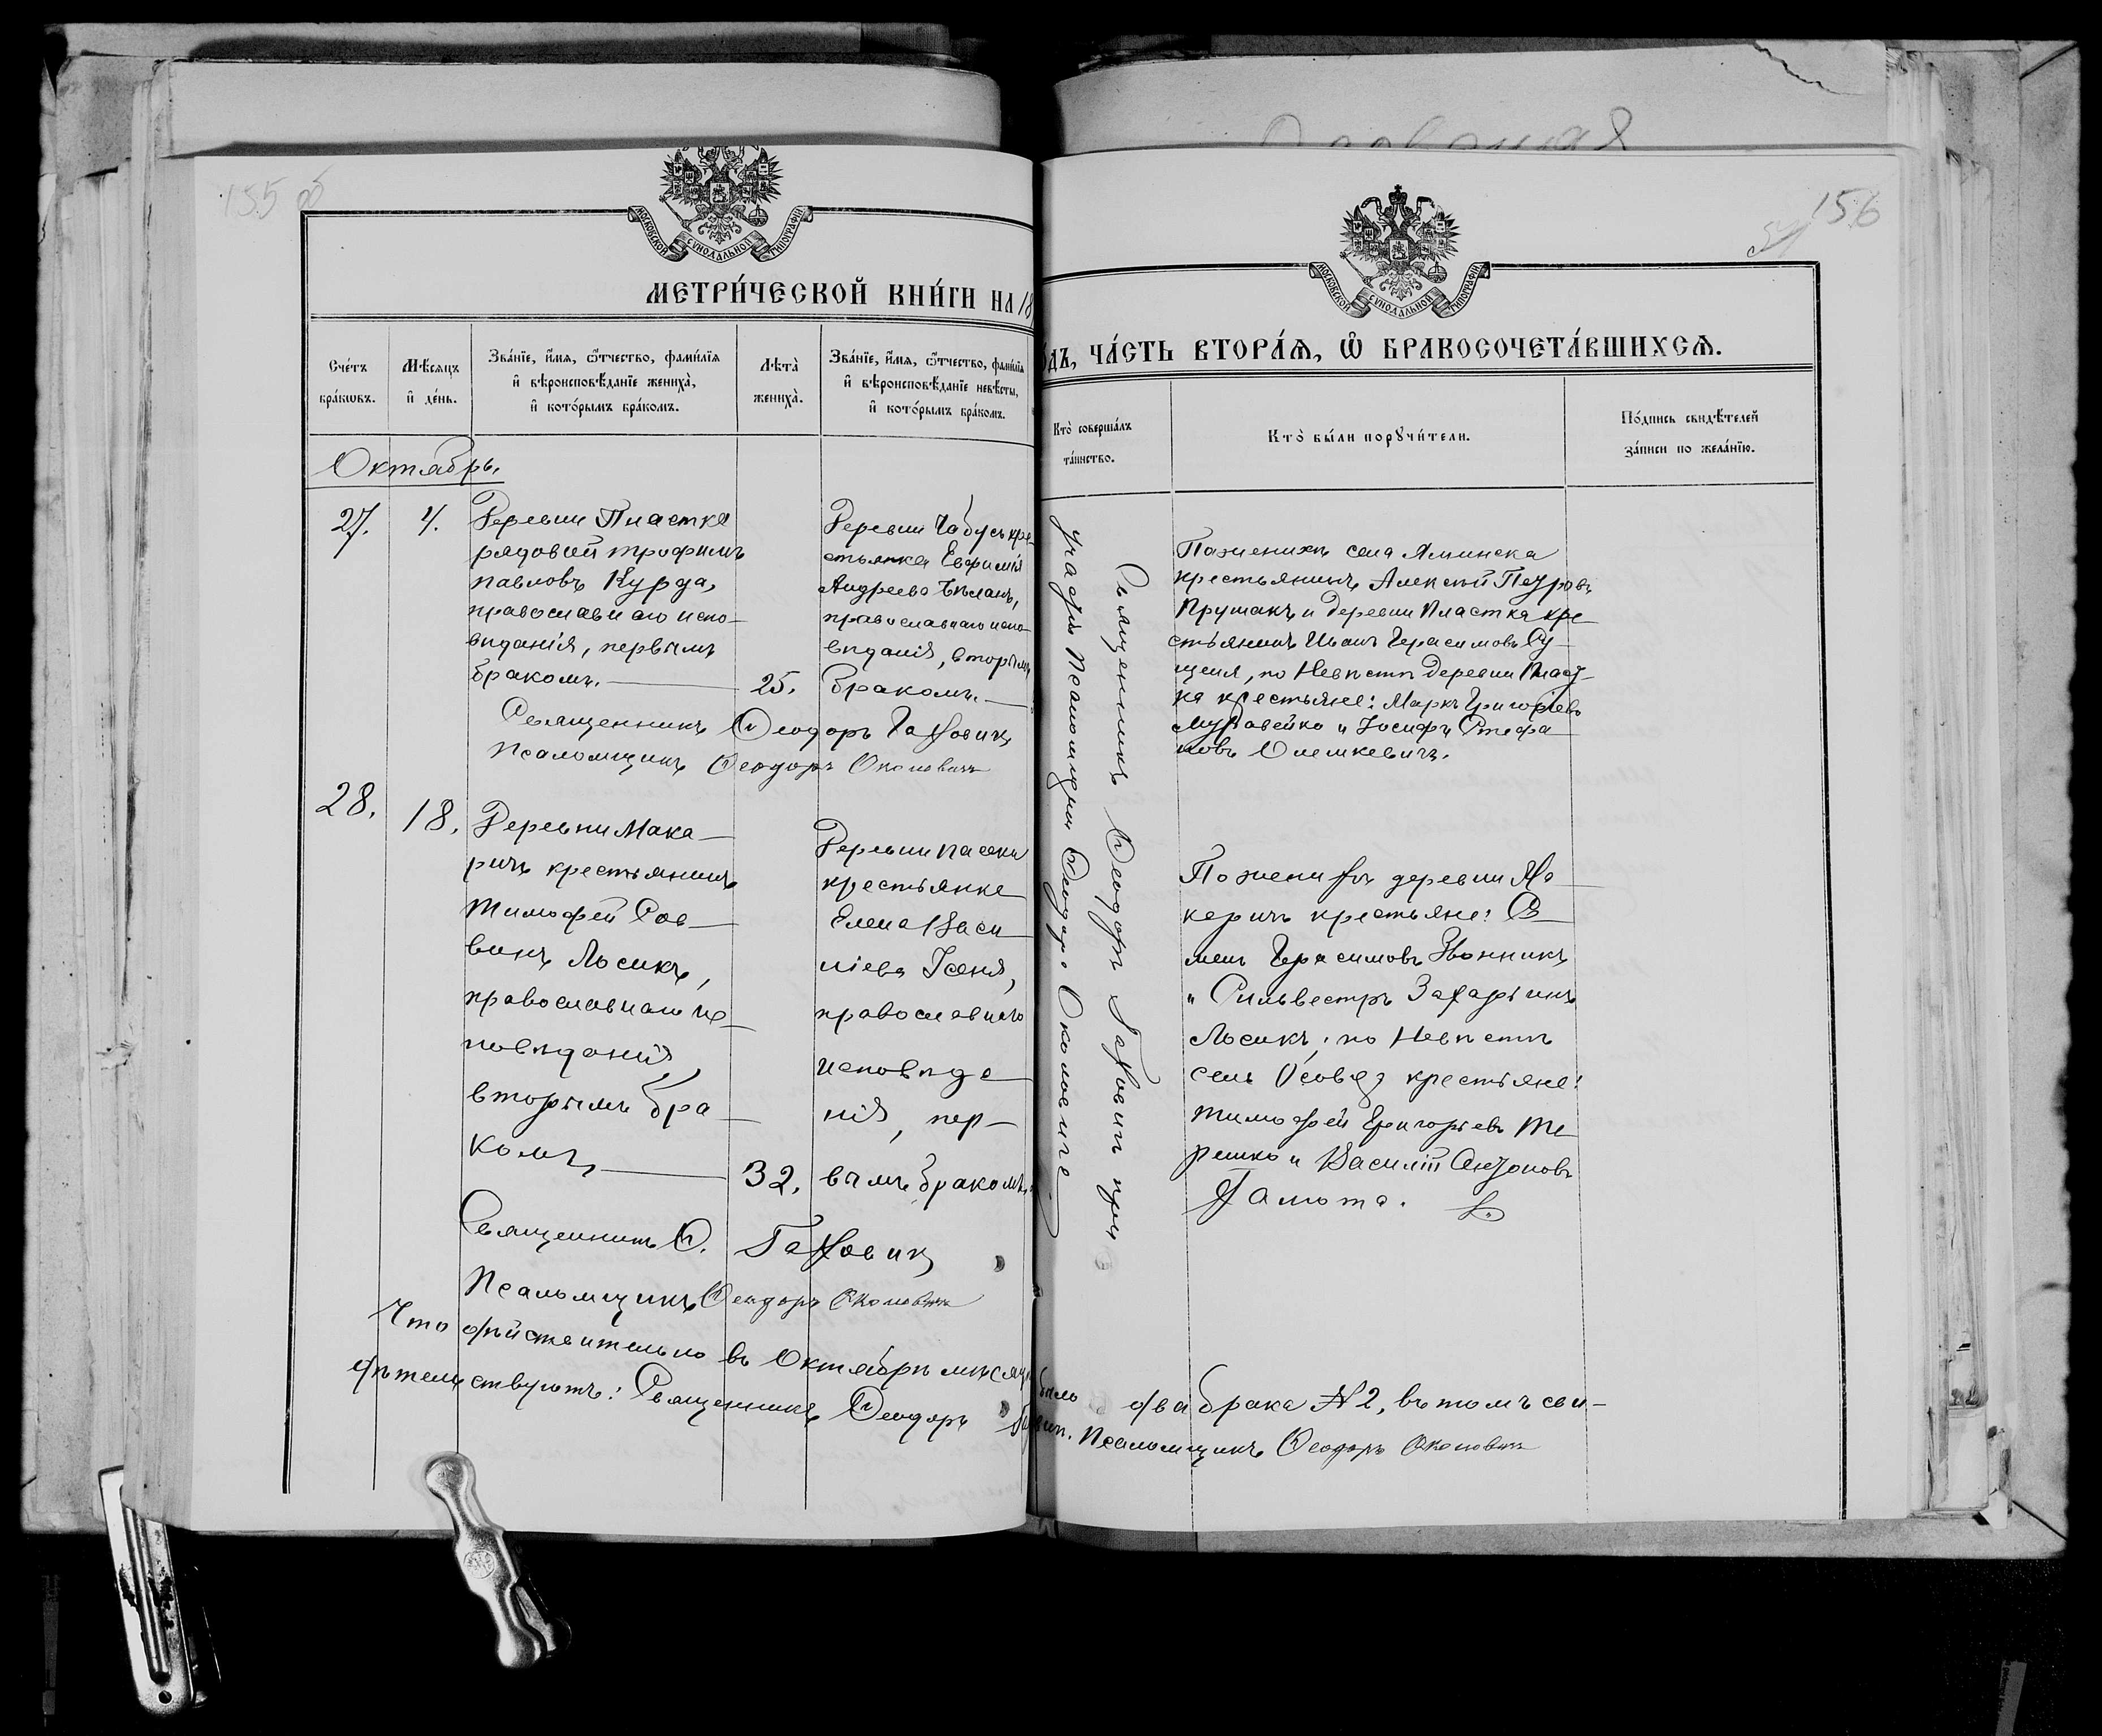 155 об
МОСКОВСКОЙ СУНОДАЛЬНОЙ ТИПОГРАФІИ
МЕТРИ́ЧЕСКОЙ КНИ́ГИ НА 18
Сче́тъ бра́кωвъ.
Мѣ́сяцъ и҆ де́нь.
Зва́нїе, и҆́мя, ѻ҆́тчество, фами́лїя
и҆ вѣроисповѣ́данїе жениха̀,
и҆ кото́рымъ бра́комъ.
Лѣта̀ жениха̀.
Зва́нїе, и҆́мя, ѻ҆́тчество, фами́лїя
и҆ вѣроисповѣ́данїе невѣ́сты,
и҆ кото́рымъ бра́комъ.
Октябрь.
27.
4.
Деревни Пластка
рядовой Трофимъ
Павловъ Курда,
православнаго испо-
вѣданія, первымъ
бракомъ.
25.
Деревни Чабусъ кре-
стьянка Евфимія
Андреева Бѣланъ,
православнаго испо-
вѣданія, вторымъ
бракомъ.
Священникъ Ѳеодоръ Гахович
Псаломщикъ Ѳеодоръ Околовичъ
28.
18.
Деревни Мака-
ричъ крестьянинъ
Тимофей Сав-
винъ Лосикъ,
православнаго ис-
повѣданія,
вторымъ бра-
комъ,
32.
Деревни Пасеки
крестьянка
Елена Васи-
ліева Ісеня,
православнаго
исповѣда-
нія, пер-
вымъ бракомъ.
Священникъ Ѳ. Гахович
Псаломщикъ Ѳеодоръ Околовичъ
Что дѣйствительно въ Октябрѣ мѣсяцѣ
дѣтельствуютъ: Священникъ Ѳеодоръ
156
МОСКОВСКОЙ СУНОДАЛЬНОЙ ТИПОГРАФІИ
О́ДЪ, ЧА́СТЬ ВТОРА́Я, Ѽ БРАКОСОЧЕТА́ВШИХСЯ.
Кто̀ соверша́лъ та́инство.
Кто̀ бы́ли порꙋчи́тели.
По́дпись свидѣ́телей
за́писи по жела́нїю.
Священникъ Ѳеодоръ Гахович при
участіи Псаломщика Ѳеодора Околовича
По женихѣ села Яминска
крестьянинъ Алексій Петровъ
Прушакъ и деревни Пластка кре-
стьянинъ Иванъ Герасимовъ Су-
щеня, по Невѣстѣ деревни Пласт-
ка крестьяне: Маркъ Григоріевъ
Муравейко и Іосифъ Стефа
новъ Олешкевичъ.
По женихѣ деревни Ма-
каричъ крестьяне: Се-
менъ Герасимовъ Звонникъ
и Сильвестръ Захарьинъ
Лосикъ; по Невѣстѣ
села Осовца крестьяне:
Тимофей Григорьевъ Те-
решко и Василій Антоновъ
Гамота.
было два брака № 2, въ томъ сви-
Псаломщикъ Ѳеодоръ Околовичъ